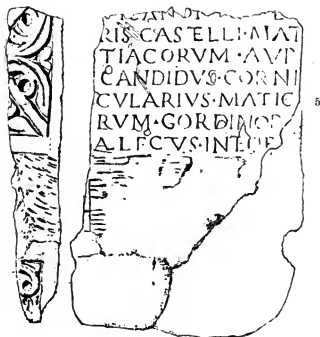 RIS·CASTELLI·MAT
TIACORUM·AUR
CANDIDUS·CORNI
CULARIUS·MATIC
RUM·GORDI
ALECUS·INT
5